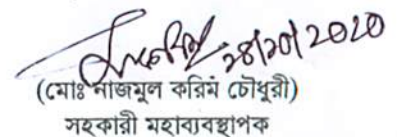 ২৮/১০/2020
(মোঃ নাজমুল করিম চৌধুরী)
সহকারী মহাব্যবস্থাপক